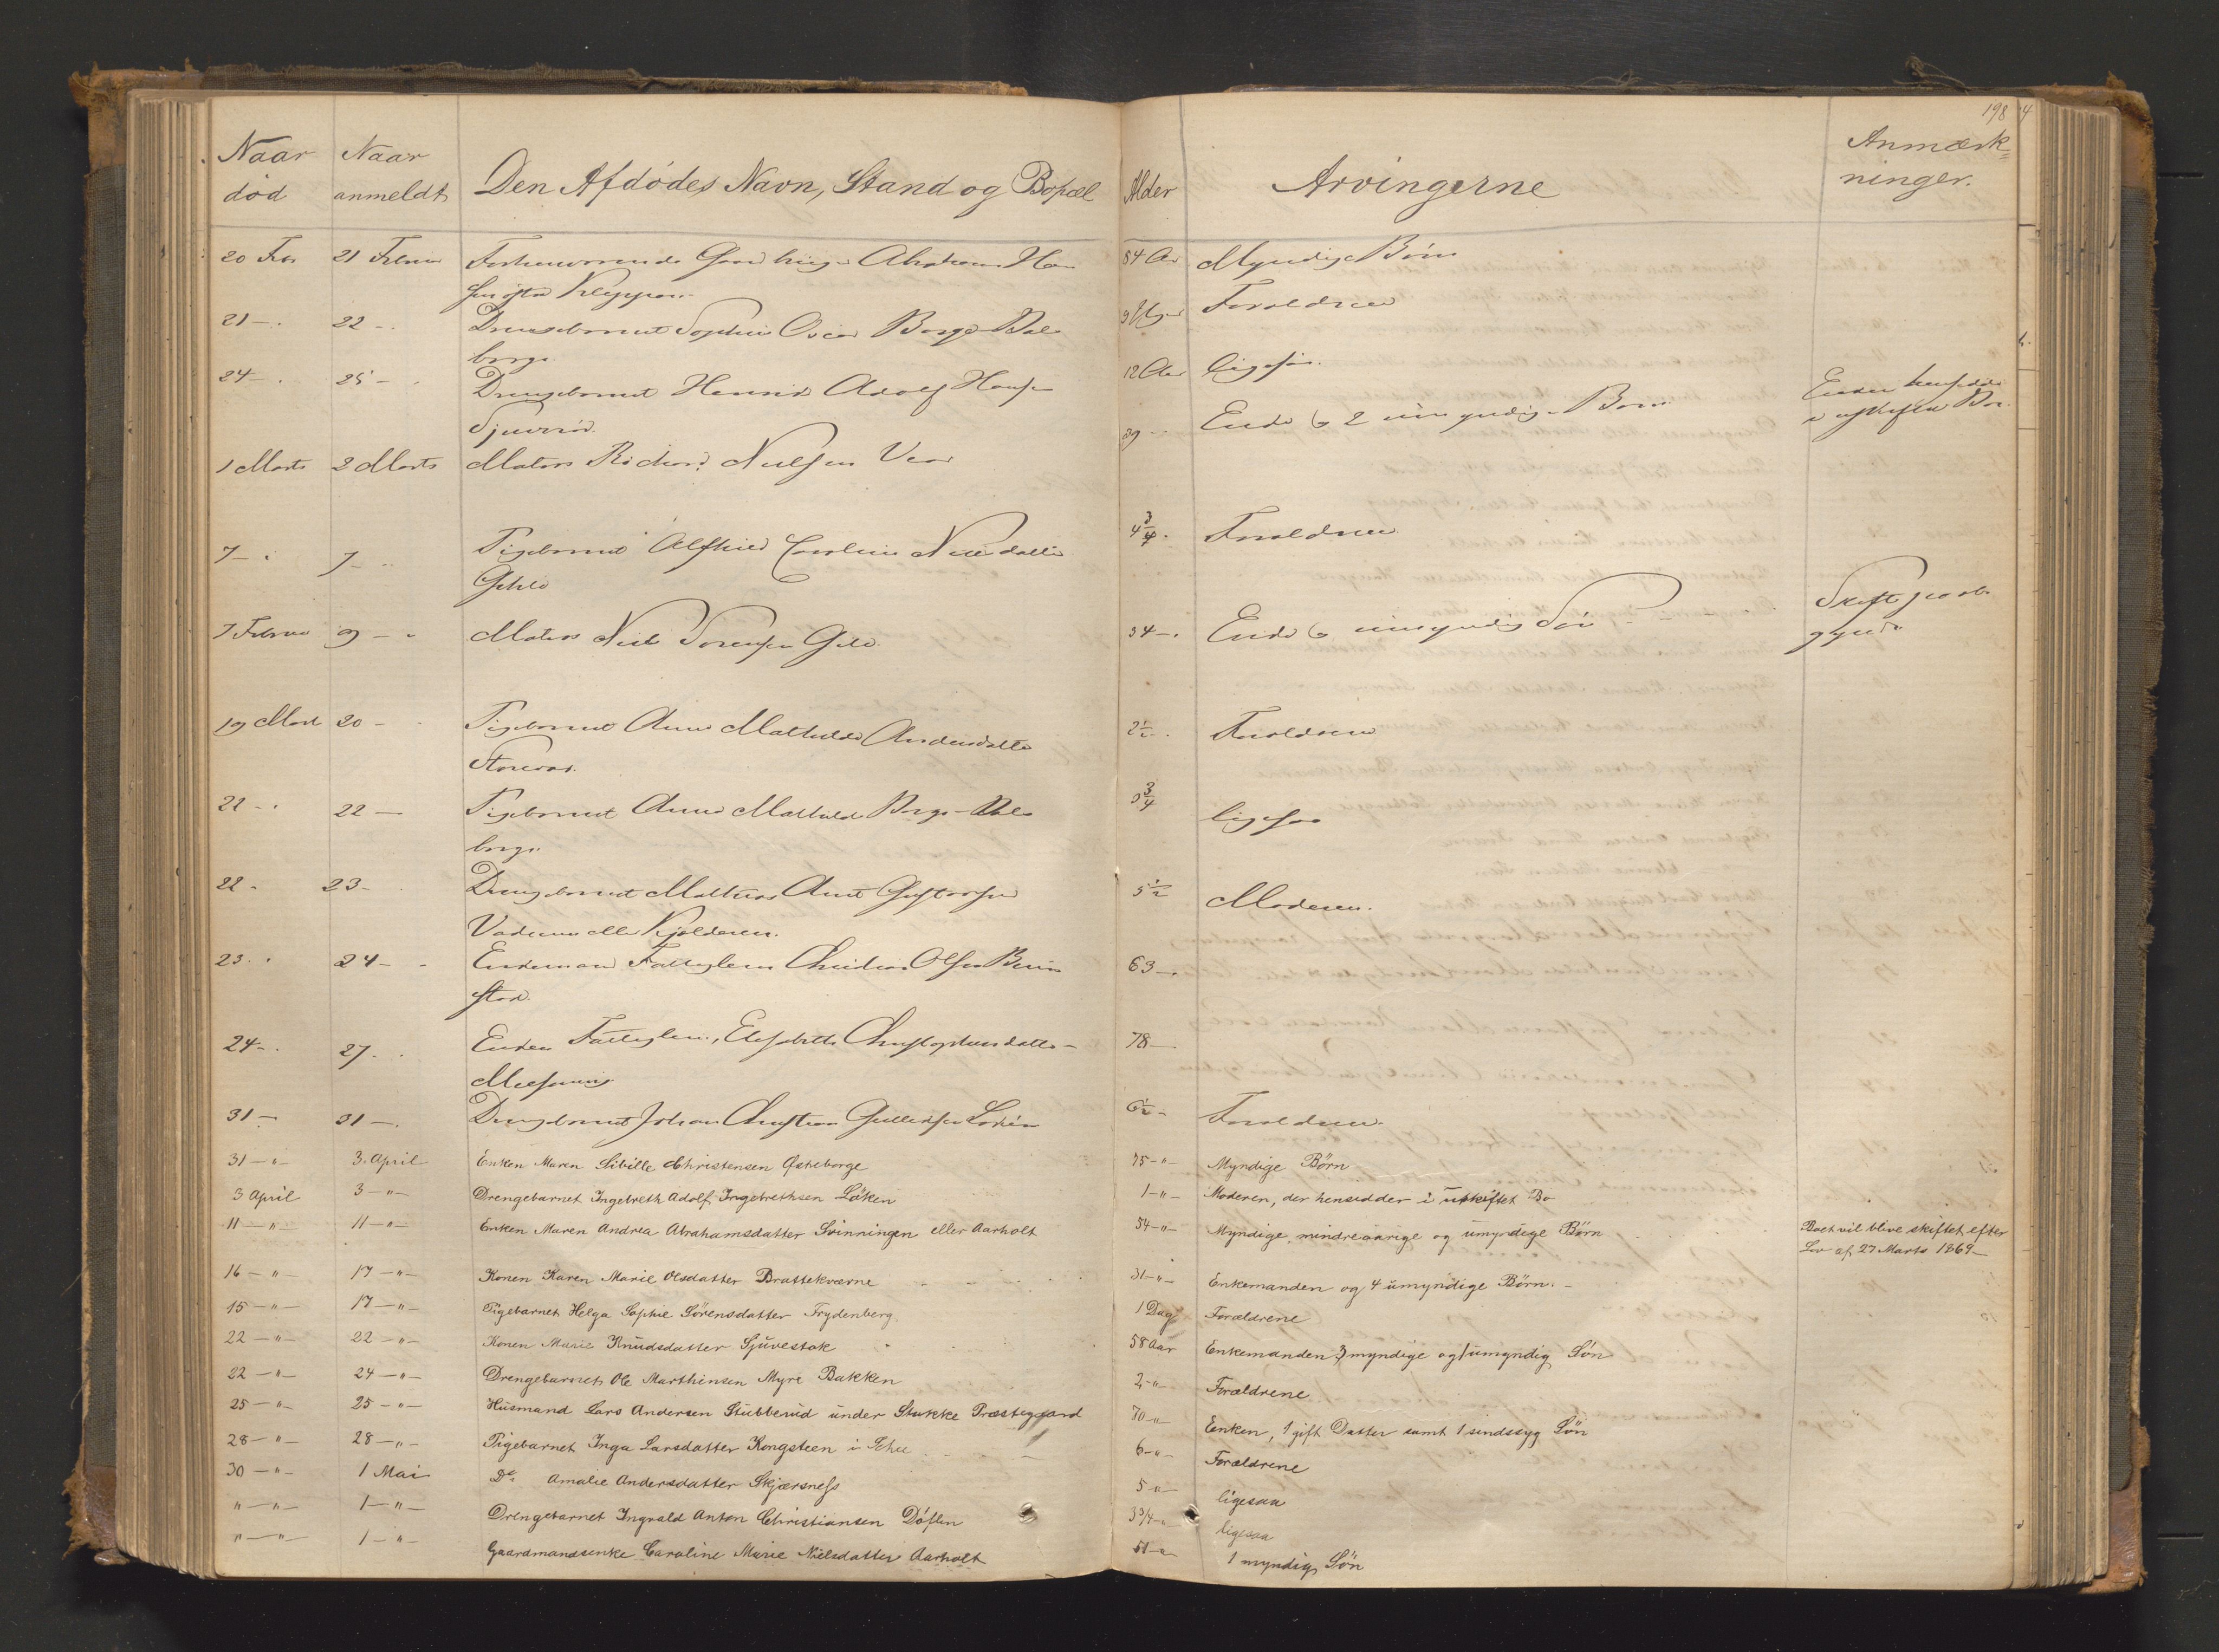 198
Naar død
Naar anmeldt
Den Afdødes Navn, Stand og Bopæl
Alder
Arvingerne
Anmærk=
ninger.
20 Febr 21 Februar Forhenværende Gaardbruger Abraham Han 84 Aar Myndige Børn
sen
21 — 22 — Drengebarnet Sophus Oscar Borge Dal Forældrene
borge
24 — 25 — Drengebarnet Henrik Adolf Hansen 12 Aar ligesaa
1 Marts 2 Marts Matros Richard Nielsen 39 — Enke & 2 umyndige Børn Enken hensidder
i uskiftet Bo.
7 — 7 — Pigebarnet Alfhild Caroline 4 3/4 Forældrene
7 Februar 9 — Matros Niels Sørensen 34 — Enke & umyndig Søn
19 Marts 20 — Pigebarnet Anne Mathilde Andersdatter 2 1/2 Forældrene
22 — 22 — Pigebarnet Anne Mathilde Borge Dal 3/4 ligesaa
borge
22 — 23 — Drengebarnet 5 1/2 Moderen.
23 — 24 — Enkemand Fattiglem Christian Olsen 63 —
24 — 27 — Enken Fattiglem, Elisabeth Christophersdatter 78 —
31 — 31 — Drengebarnet Johan Christian Gulliksen 6 1/2 — Forældrene
31 — " — 3. April Enken Maren Sibille Christensen Østeborge 75 — " — Myndige Børn
3 April 3 — " — Drengebarnet Ingebreth Adolf Ingebrethsen Løken 1 — " — Moderen, der hensidder i uskiftet Bo
11 — " — 11 — " — Enken Maren Andrea Abrahamsdatter Svinningen eller Aarholt 54 — " — Myndige, mindreaarige og umyndige Børn Boet vil blive skiftet efter
Lov af 27 Marts 1869 —
16 — " 17 — " — Konen Karen Marie Olsdatter Brattekværne 31 — " — Enkemanden og 4 umyndige Børn. —
15 — " — 17 — " — Pigebarnet Helga Sophie Sørensdatter Frydenberg 1 Dag Forældrene
22 — " — 22 — " — Konen Marie Knudsdatter Sjuvestok 58 Aar Enkemanden, 3 myndige og 1 umyndig Søn
22 — " — 24 — " — Drengebarnet Ole Marthinsen Myre Bakken 2 — " — Forældrene
25 — " — 25 — " — Husmand Lars Andersen Stubberud under Stokke Præstegaard 70 — " Enken, 1 gift Datter samt 1 sindssyg Søn
28 — " — 28 — " — Pigebarnet Inga Larsdatter Kongsteen i 6 — " — Forældrene
30 — " — 1 Mai Do Amalie Andersdatter Skjærsness 5 — " — ligesaa
" — " — 1 — " — Drengebarnet Ingvald Anton Christiansen Døslen 3 3/4 — " — ligesaa
" — " — 1 — " — Gaardmandsenke Caroline Marie Nielsdatter Aarholt 51 — " 1 myndig Søn